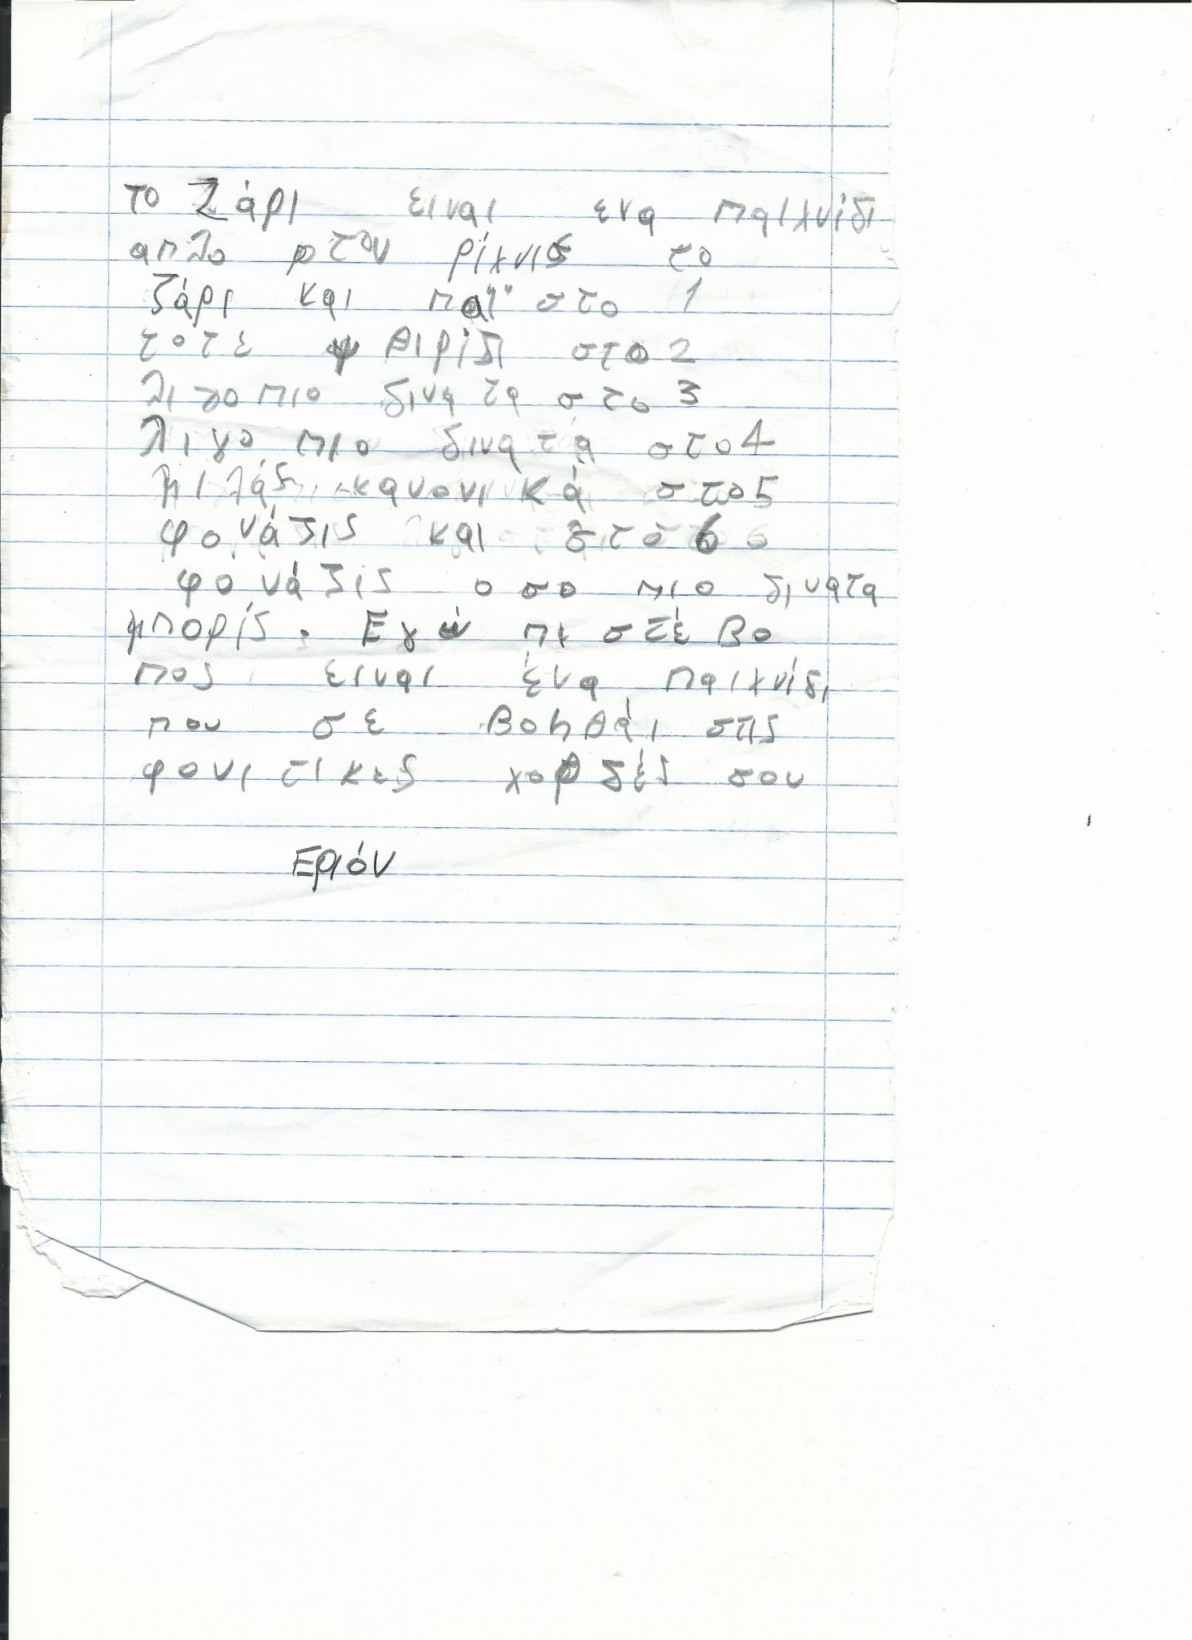 το Ζάρι ειναι ενα παιχνίδι
απλο οταν ρίχνις το
ζάρι και παϊ στο 1
τοτε ψιθιρίζι στο 2
λιγο πιο δινατα στο 3
λιγο πιο δινατά στο 4
μιλάς κανονικά στο 5
φονάζις και στο 6
φονάζις οσο πιο δινατα
μπορίς. Εγω πιστέβο
πος ειναι ένα παιχνίδι
που σε Βοηθάι στις
φονιτικες χορδές σου
Εριόν